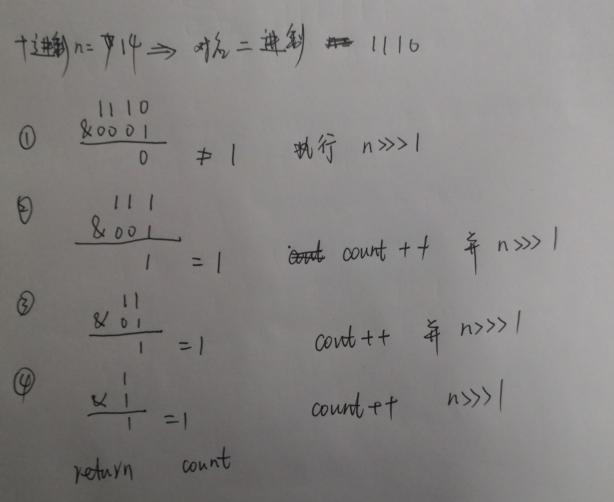 十进制 n = 14 ⇒ 对应二进制 1110
1110
① &0001
0 ≠ 1 执行 n>>>1
111
② &001
1 = 1 count ++ 并 n>>>1
11
③ & 01
1 = 1 cout ++ 并 n>>>1
1
④ & 1
1 = 1 count ++ n>>>1
return count